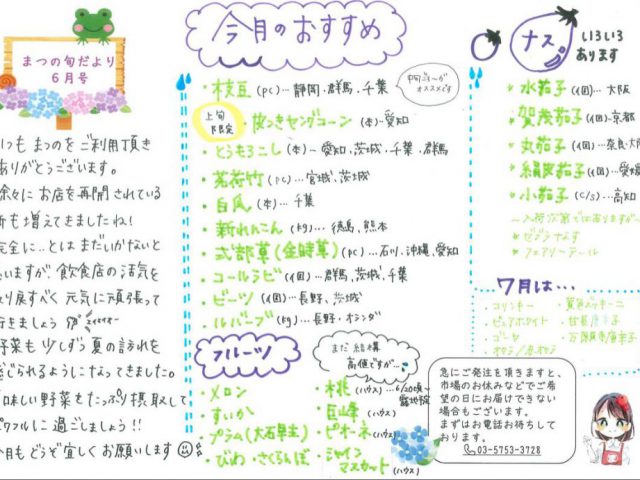 まつの旬だより
６月号
いつも まつのを ご利用頂き
ありがとうございます。
余々に お店を再開されている
所も増えてきましたね!
完全に…とは まだいかないと
思いますが、飲食店の活気を
取り戻すべく 元気に頑張って
行きましょう
野菜も少しずつ 夏の訪れを
感じられるようになってきました。
美味しい野菜をたっぷり摂取して
パワフルに過ごしましょう!!
今月もどうぞ宜しくお願いします
今月のおすすめ
・枝豆 (pc)…静岡、群馬、千葉
オススメです
上旬
限定
・皮つきヤングコーン (本)…愛知
・とうもろこし (本)…愛知、茨城、千葉、群馬
・茗荷竹 (pc)…宮城、茨城
・白瓜 (本)…千葉
・新れんこん (kg)…徳島、熊本
・式部草(金時草) (pc)…石川、沖縄、愛知
・コールラビ (1個)…群馬、茨城、千葉
・ビーツ (1個)…長野、茨城
・ルバーブ (kg)…長野、オランダ
フルーツ
・メロン
・すいか
・プラム(大石早生)
・びわ ・さくらんぼ
まだ 結構
高値ですが…
・桃 (ハウス)…6/20頃〜
露地予定
・巨峰 (ハウス)
・ピオーネ (ハウス)
・シャイン
マスカット (ハウス)
ナス
いろいろ
あります
水茄子 (1個)…大阪
賀茂茄子 (1個)…京都
丸茄子 (1個)…奈良、大
絹皮茄子 (1個)…愛媛
小茄子 (c/s)…高知
〜入荷次第ではありますが〜
ゼブラなす
フェアリーテール
7月は…
・コリンキー
・黄色ズッキーニ
・ピュアホワイト
・甘長唐辛子
・ゴーヤ
・万願寺唐辛子
・オクラ/赤オクラ
急にご発注を頂きますと、
市場のお休みなどでご希
望の日にお届けできない
場合もございます。
まずはお電話お待ちして
おります。
03-5753-3728